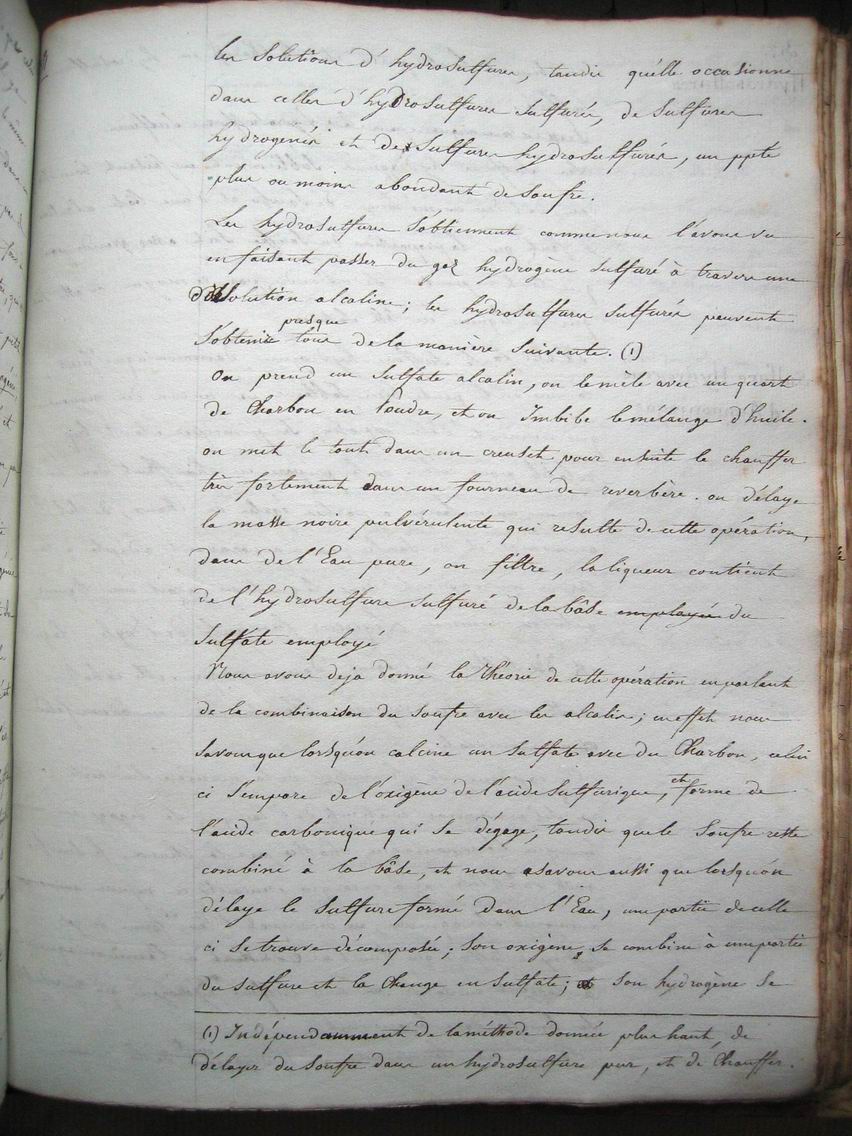 les solutions d'hydrosulfures, tandis quélle occasionne
dans celles d'hydrosulfures sulfurés, de sulfures
hydrogénés et de sulfures hydrosulfurés, un ppté
plus ou moins abondant de soufre.
Les hydrosulfures s'obtiennent comme nous l'avons vu
en faisant passer du gaz hydrogène sulfuré à travers une
dissolution alcaline ; les hydrosulfures sulfurés peuvent
presque
s'obtenir tous de la manière suivante. (1)
On prend un sulfate alcalin, on le mêle avec un quart
de Charbon en Poudre, et on Imbibe le mélange d'huile.
on met le tout dans un creuset pour ensuite le chauffer
très fortement dans un fourneau de reverbère. on délaye
la masse noire pulvérulente qui resulte de cette opération,
dans de l'Eau pure, on filtre, la liqueur contient
de l'hydrosulfure sulfuré de la bâse employée du
sulfate employé
Nous avons deja donné la Théorie de cette opération en parlant
de la combinaison du soufre avec les alcalis ; en effet nous
savons que lorsqu'on calcine un sulfate avec du Charbon, celui
ci s'empare de l'oxigène de l'acide sulfurique, et forme de
l'acide carbonique qui se dégage, tandis que le soufre reste
combiné à la bâse, et nous savons aussi que lorsqu'on
délaye le sulfure formé dans l'Eau, une partie de celle
ci se trouve décomposée ; son oxigène se combine à une partie
du sulfure et la Change en sulfate ; et son hydrogène se
(1) Indépendamment de la méthode donnée plus haut, de
délayer du soufre dans un hydrosulfure pur, et de Chauffer.